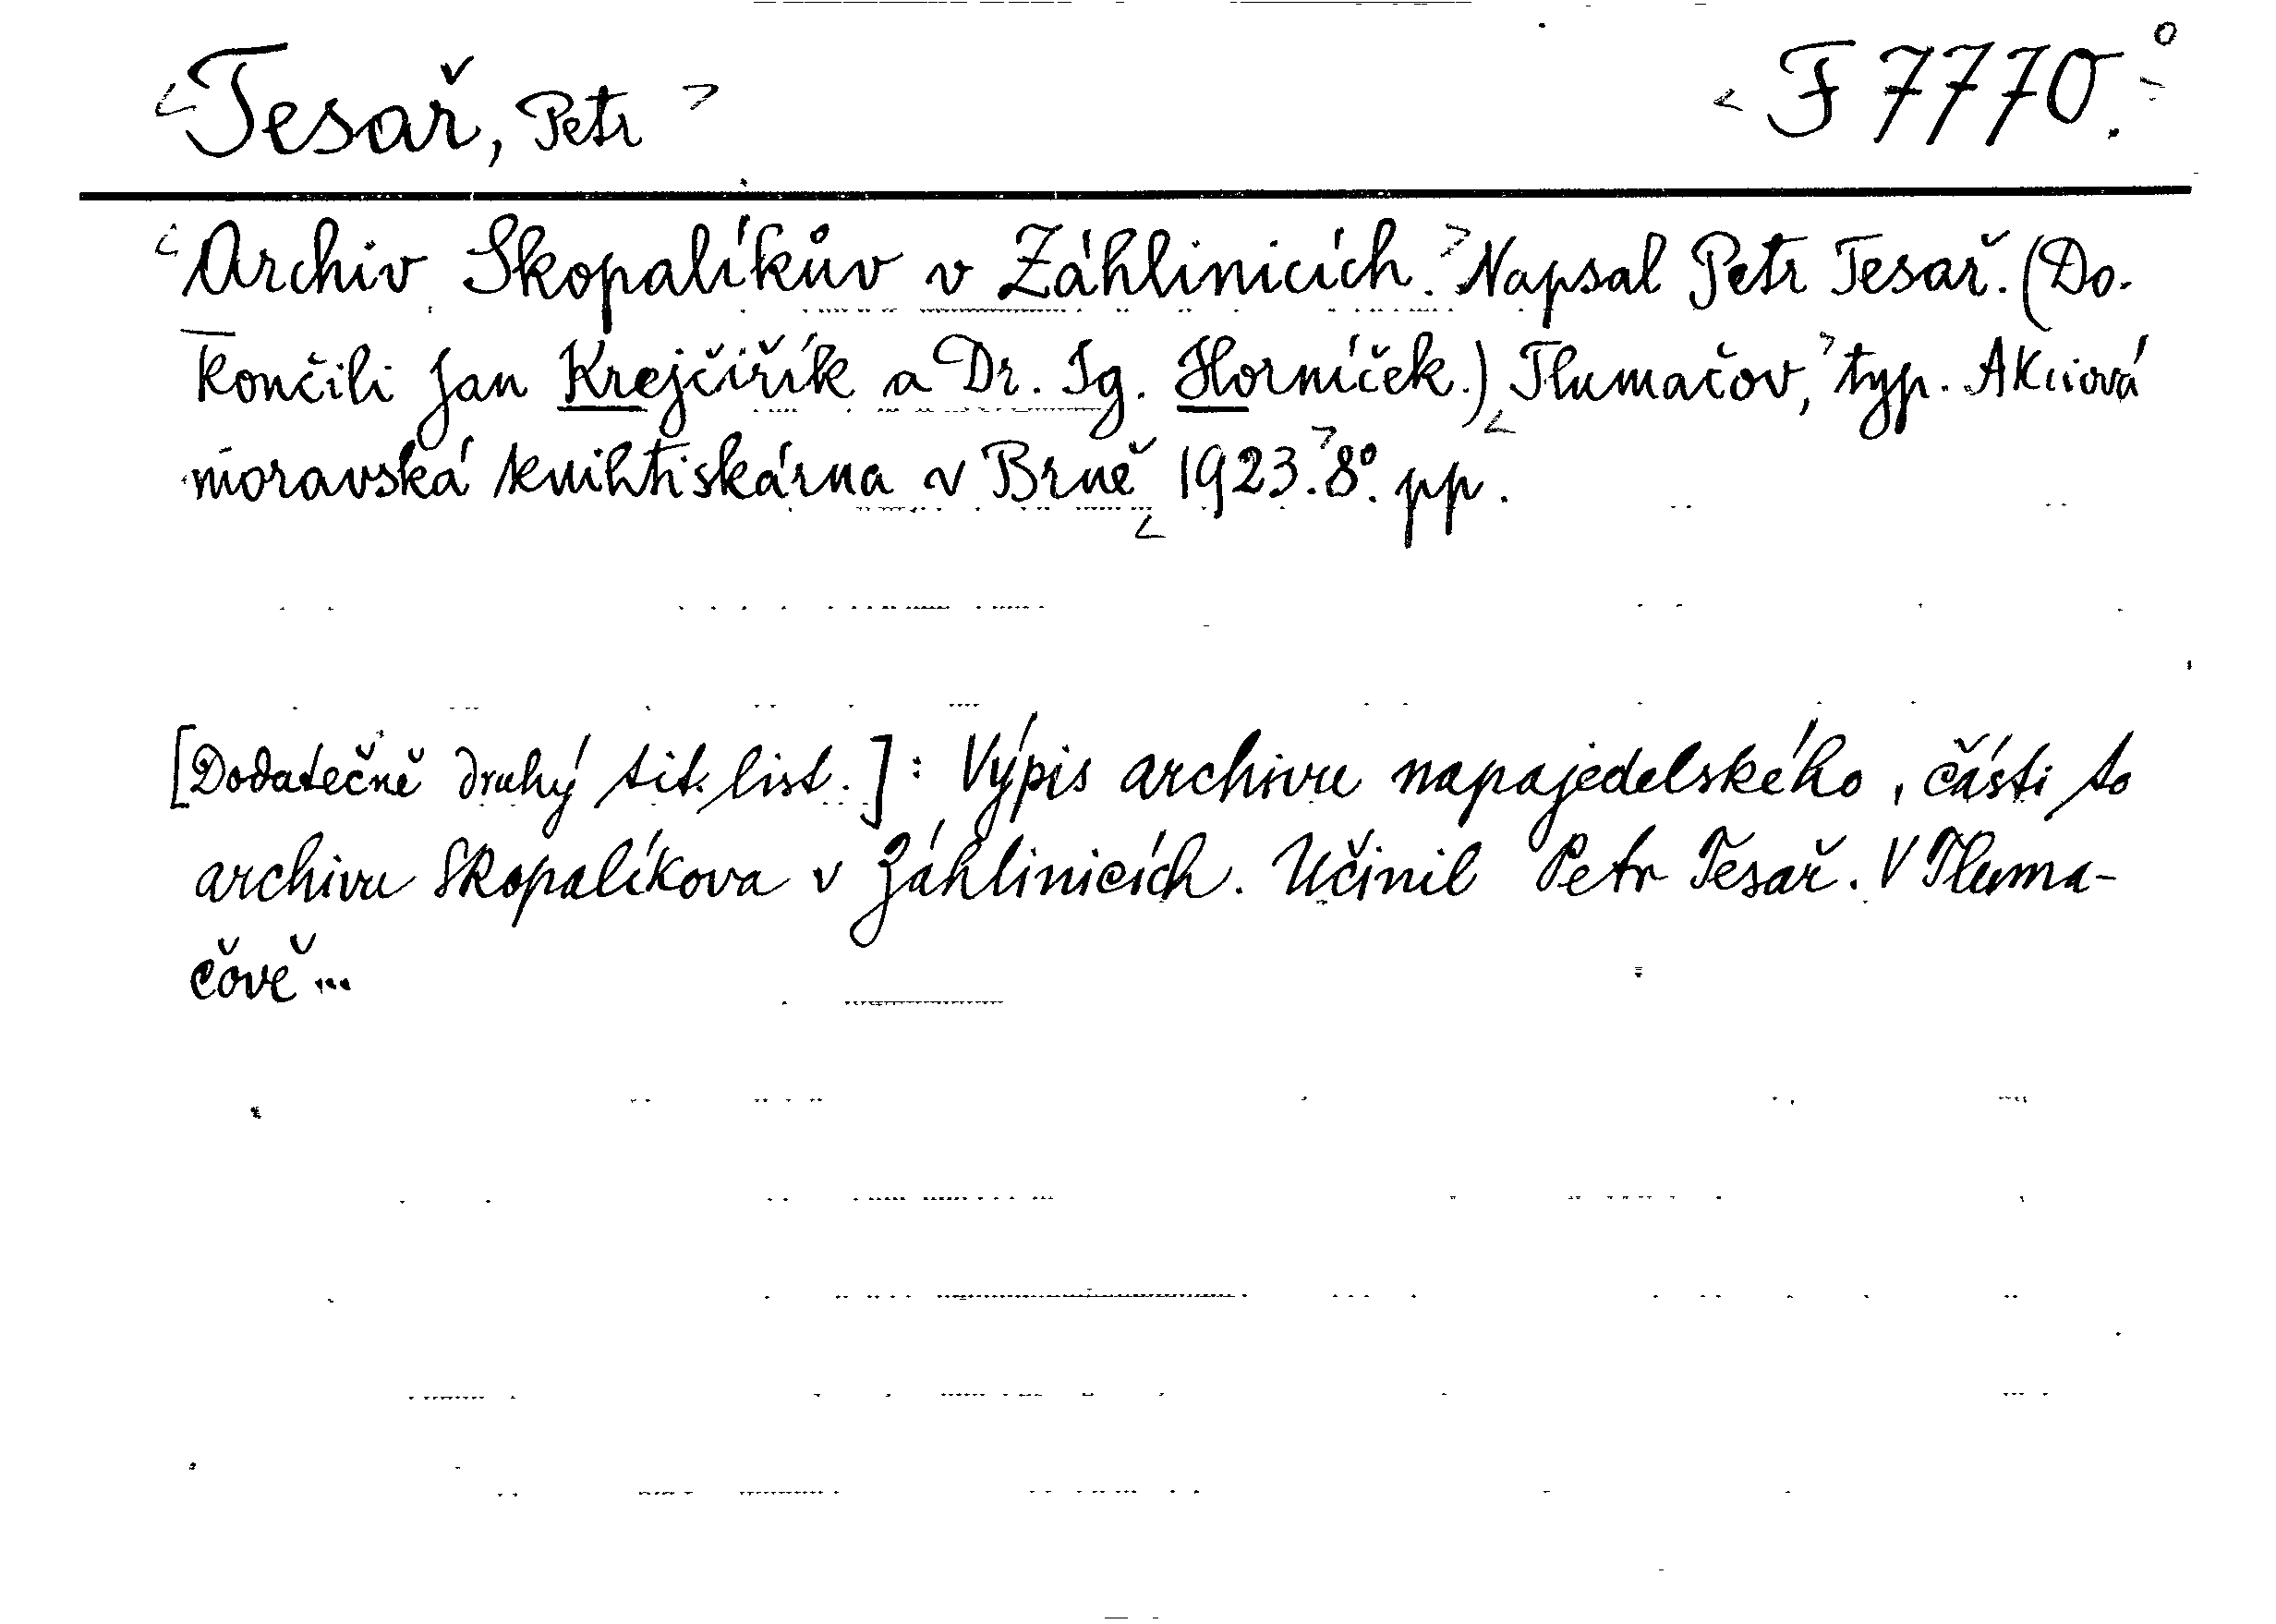 <Tesař, Petr>
<F 7770.°
<Archiv Skopalíkův v Záhlinicích.> Napsal Petr Tesař. (Do-
končili Jan Krejčiřík a Dr. Ig. Horníček.) <Tlumačov,> typ. Akciová
moravská knihtiskárna v Brně <1923.> 8°. pp.
[Dodatečně druhý tit. list.]: Výpis archivu napajedelského, části to
archivu Skopalíkova v Záhlinicích. Učinil Petr Tesař. V Tluma-
čově...